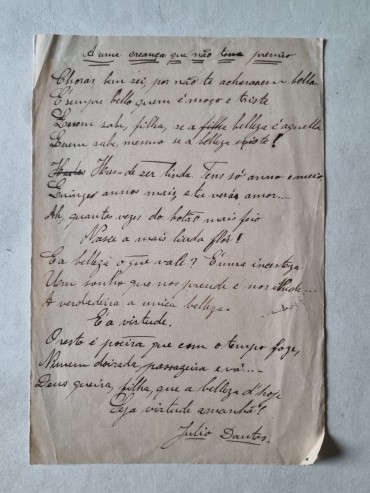 A uma creança que não teve premio
Choras bem sei, por não te acharem bella
E' sempre bello quem é moço e triste
Quem sabe, filha, se a belleza é aquella
Quem sabe, mesmo se a belleza existe!
Has-de ser linda. Tens só anno e meio,
Quinze annos mais, e tu verás amor...
Ah, quantas vezes do botão mais feio
Nasce a mais linda flôr!
E a belleza o que vale? E' uma incerteza
Um sonho que nos prende e nos illude...
A verdadeira a unica belleza
E' a virtude.
O resto é poeira que com o tempo foge,
Nuvem doirada, passageira e vã...
Deus queira, filha, que a belleza d'hoje
Seja virtude amanhã!
Julio Dantas.